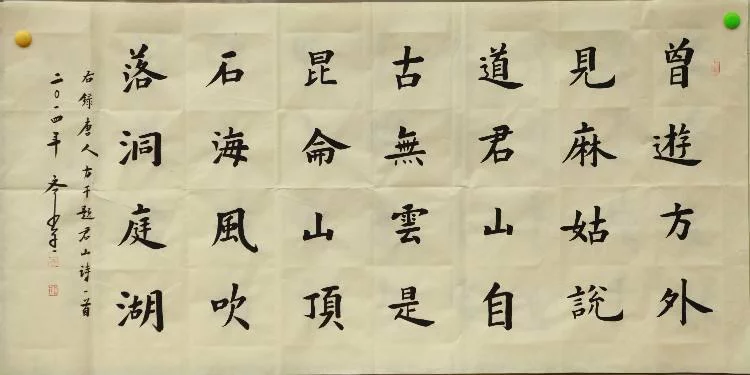 曾遊方外
見麻姑說
道君山自
古無雲是
昆侖山頂
石海風吹
落洞庭湖
右録唐人方干题君山诗一首
二〇一四年